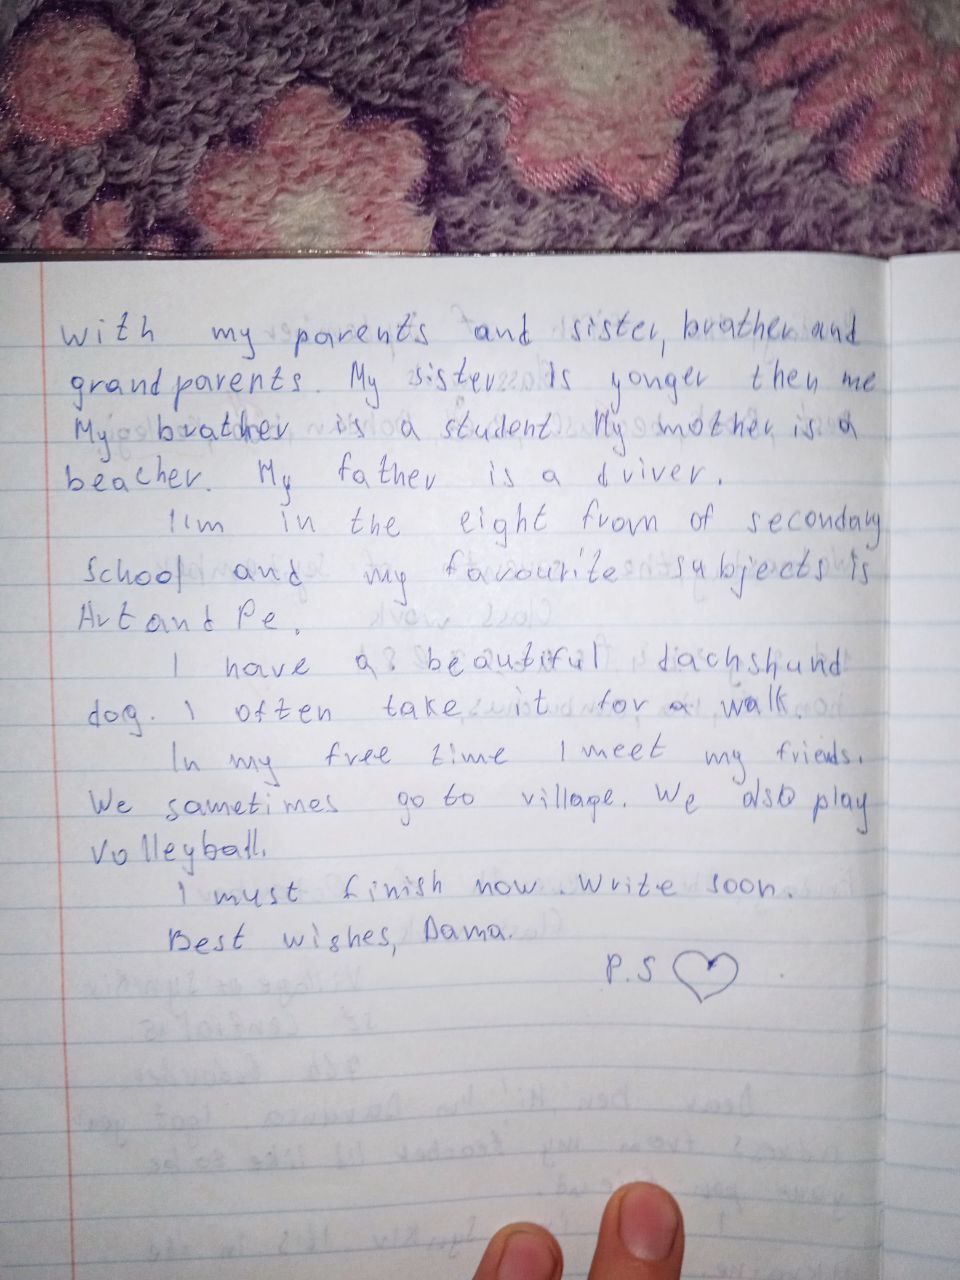 with my parents and sister, brather and
grandparents. My sister is yonger then me
My brather is a student My mother is a
beacher. My father is a driver.
I'm in the eight from of secondary
school and my favourite subjects is
Art and Pe.
I have a beautiful dachshund
dog. I often take it for a walk.
In my free time I meet my friends.
We sametimes go to village. We also play
volleyball.
I must finish now. Write soon.
Best wishes, Dama.
P.S